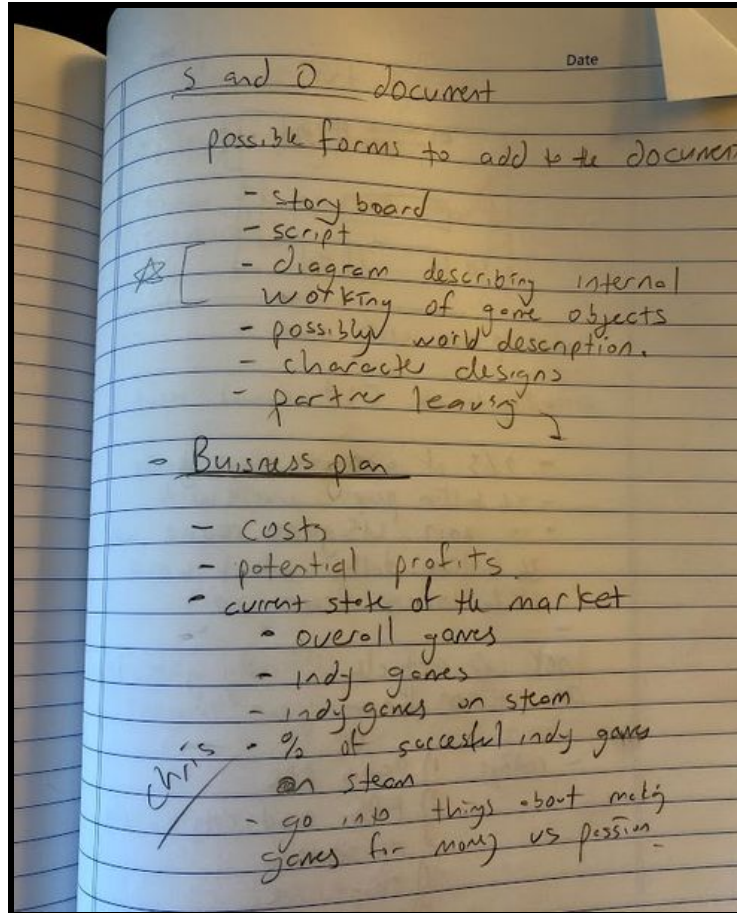 Date
S and O document
possible forms to add to the document
- story board
- script
- diagram describing internal
working of game objects
- possibly world description.
- character designs
- partner leaving
- Buisness plan
- costs
- potential profits
- current state of the market
- overall games
- indy games
- indy games on steam
Chris
- % of succesful indy games
on steam
- go into things about making
games for money vs passion